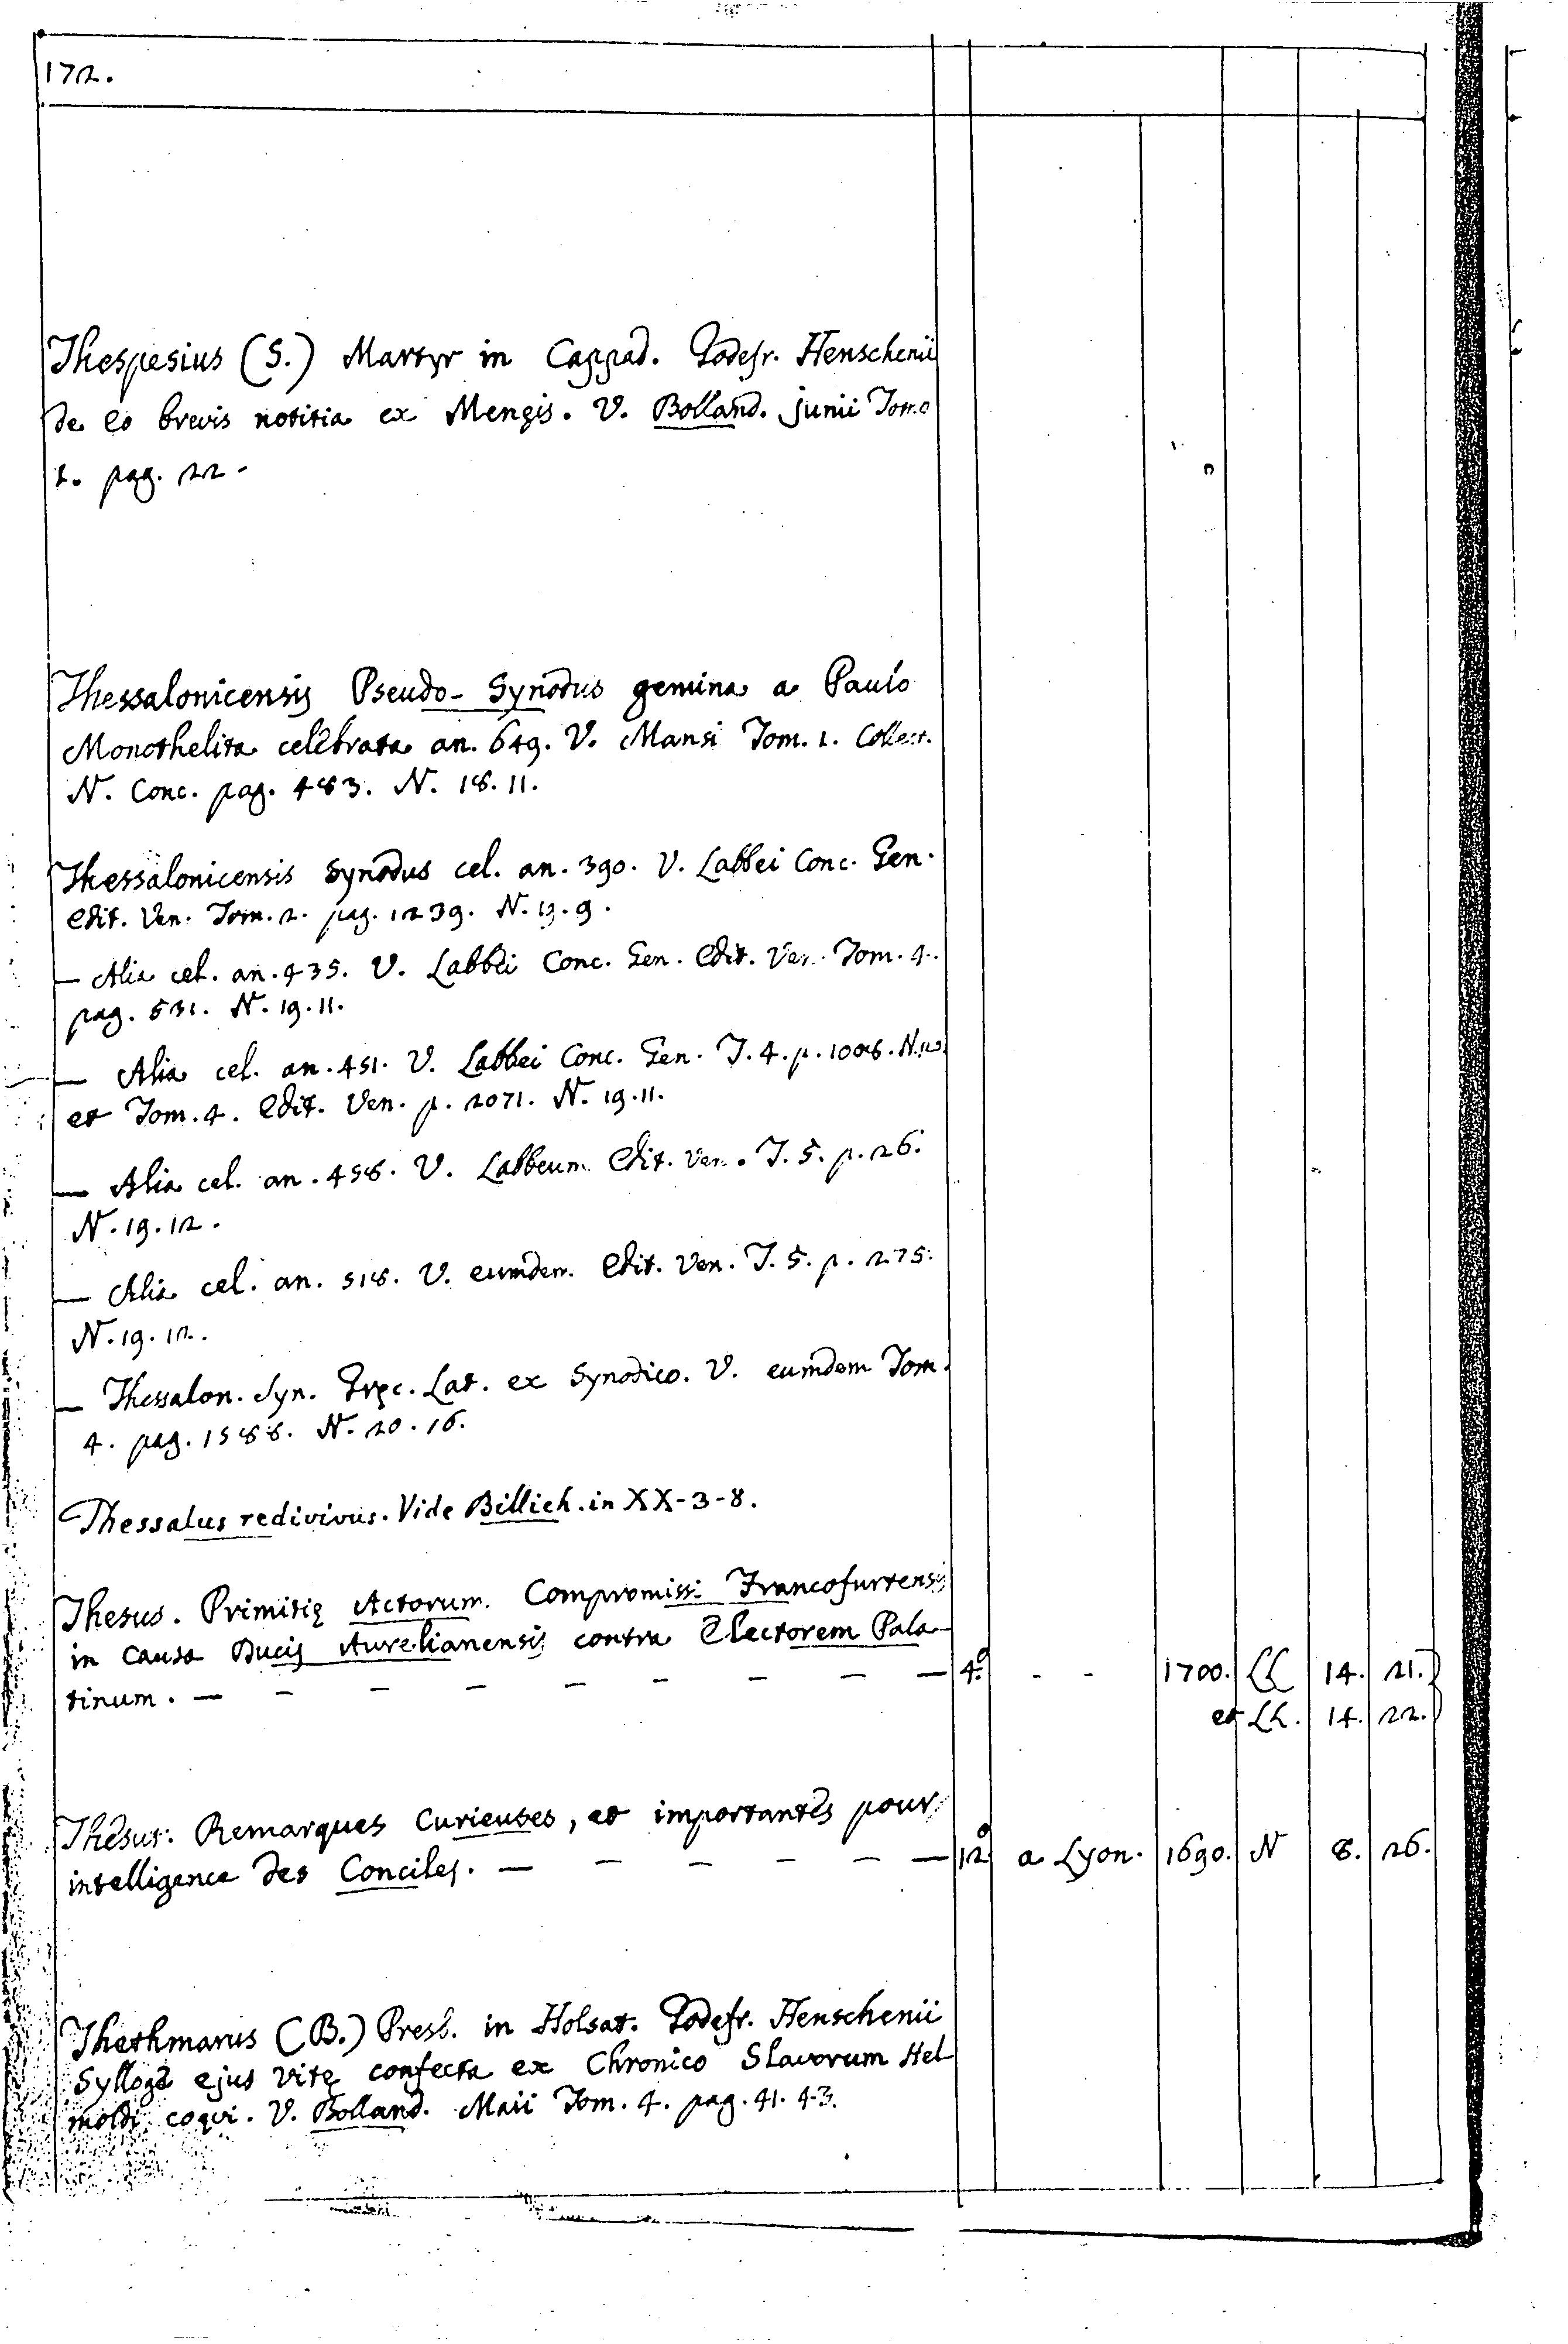 172.
Thespesius (S.) Martyr in Cappad. Godefr. Henschenii
de eo brevis notitia ex Mengis. V. Bolland. junii Tomo
1. pag. 22.
Thessalonicensis Pseudo-Synodus gemina a Paulo
Monothelita celebrata an. 649. V. Mansi Tom. 1. Collect.
N. Conc. pag. 483. N. 18. 11.
Thessalonicensis Synodus cel. an. 390. V. Labbei Conc. Gen.
edit. Ven. Tom. 2. pag. 1239. N. 19. 9.
— Alia cel. an. 435. V. Labbei Conc. Gen. Edit. Ven. Tom. 4.
pag. 531. N. 19. 11.
— Alia cel. an. 451. V. Labbei Conc. Gen. T. 4. p. 1008. N.
et Tom. 4. Edit. Ven. p. 2071. N. 19. 11.
— Alia cel. an. 458. V. Labbeum Edit. Ven. T. 5. p. 26.
N. 19. 12.
— Alia cel. an. 518. V. eumdem Edit. Ven. T. 5. p. 275.
N. 19. 12.
— Thessalon. Syn. Gręc. Lat. ex Synodico. V. eumdem Tom.
4. pag. 1588. N. 20. 16.
Thessalus redivivus. Vide Billich. in XX-3-8.
Thesus. Primitię Actorum Compromissi Francofurtensis
in causa Ducis Aurelianensis contra Electorem Pala-
tinum. — — — — — — — — — 4.º - - 1700. LL 14. 21.}
et LL. 14. 22.}
Thesut. Remarques Curieuses, et importantès pour
intelligence des Conciles. — — — — — — 12.º a Lyon. 1690. N 8. 26.
Thethmarus (B.) Presb. in Holsat. Godefr. Henschenii
Sylloge ejus vitę confecta ex Chronico Slavorum Hel-
moldi coqvi. V. Bolland. Maii Tom. 4. pag. 41. 43.